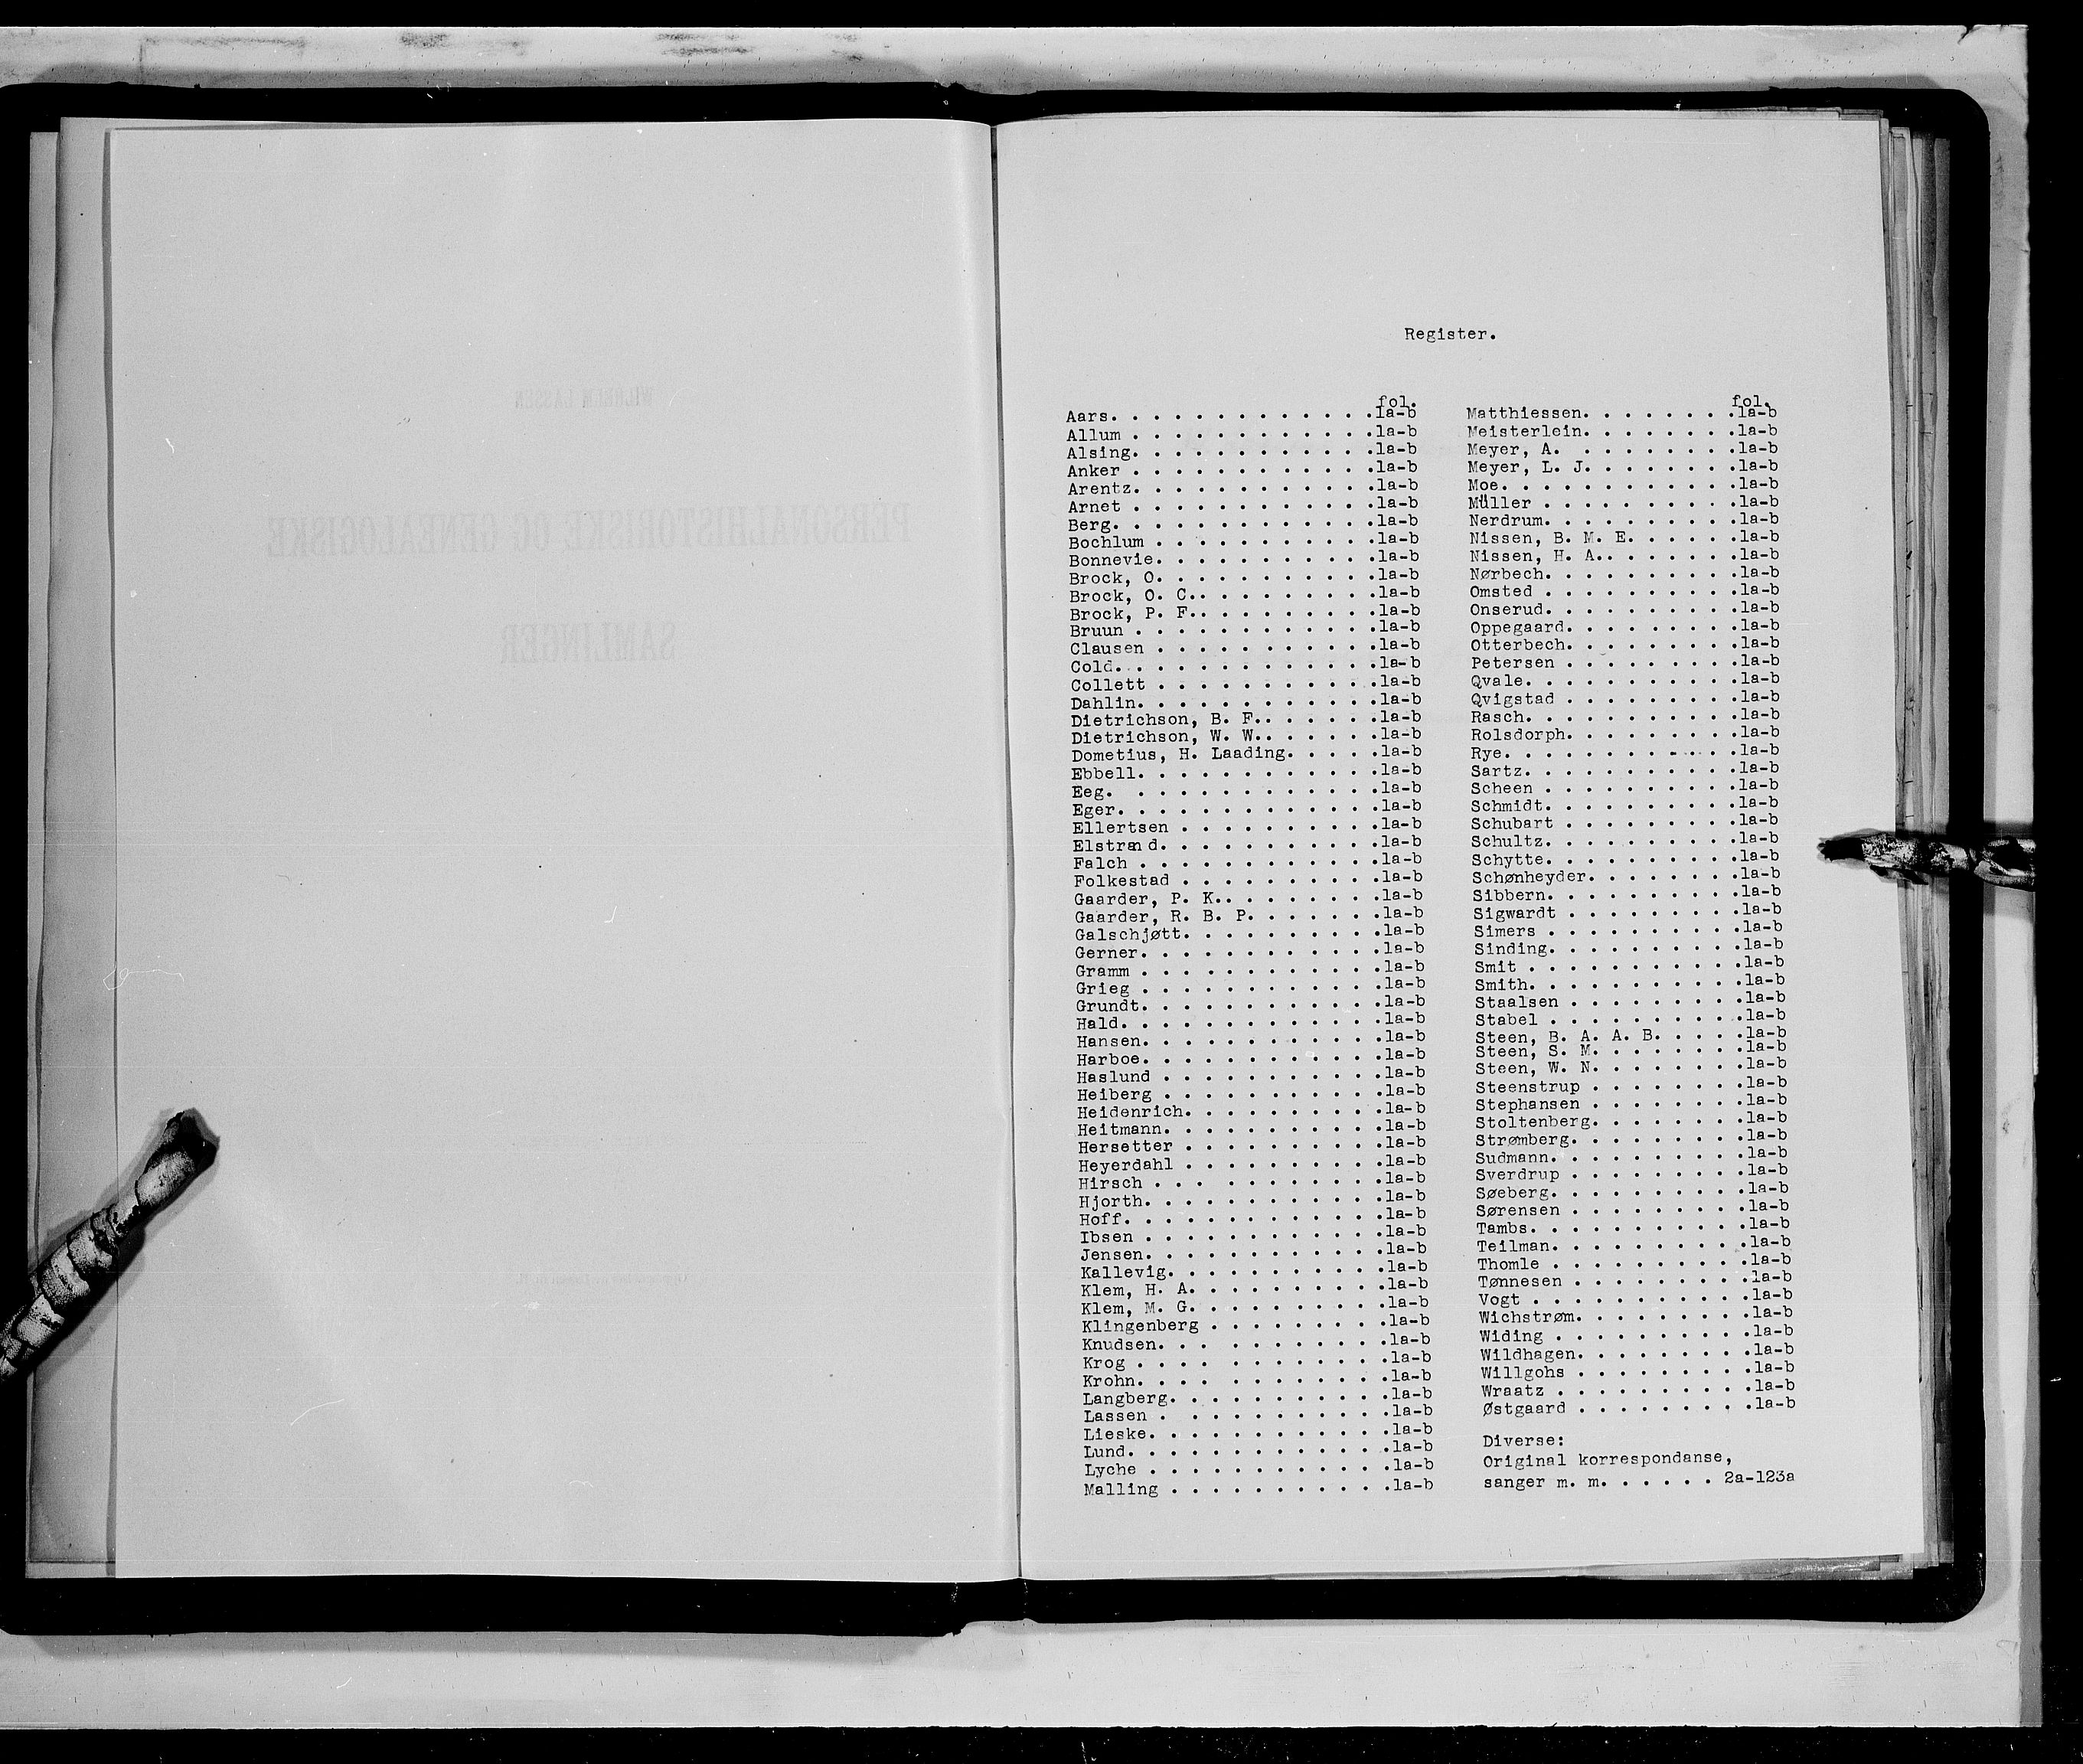 WILHELM LASSEN
PERSONALHISTORISKE OG GENEALOGISKE
SAMLINGER
Register.
fol.
Aars. . . . . . . . . . . . .1a-b
Allum . . . . . . . . . . . .1a-b
Alsing. . . . . . . . . . . .1a-b
Anker . . . . . . . . . . . .1a-b
Arentz. . . . . . . . . . . .1a-b
Arnet . . . . . . . . . . . .1a-b
Berg. . . . . . . . . . . . .1a-b
Bochlum . . . . . . . . . . .1a-b
Bonnevie. . . . . . . . . . .1a-b
Brock, O. . . . . . . . . . .1a-b
Brock, O. C.. . . . . . . . .1a-b
Brock, P. F.. . . . . . . . .1a-b
Bruun . . . . . . . . . . . .1a-b
Clausen . . . . . . . . . . .1a-b
Cold. . . . . . . . . . . . .1a-b
Collett . . . . . . . . . . .1a-b
Dahlin. . . . . . . . . . . .1a-b
Dietrichson, B. F.. . . . . .1a-b
Dietrichson, W. W.. . . . . .1a-b
Dometius, H. Laading. . . . .1a-b
Ebbell. . . . . . . . . . . .1a-b
Eeg. . . . . . . . . . . . .1a-b
Eger. . . . . . . . . . . . .1a-b
Ellertsen . . . . . . . . . .1a-b
Elstrand. . . . . . . . . . .1a-b
Falch . . . . . . . . . . . .1a-b
Folkestad . . . . . . . . . .1a-b
Gaarder, P. K.. . . . . . . .1a-b
Gaarder, R. B. P. . . . . . .1a-b
Galschjøtt. . . . . . . . . .1a-b
Gerner. . . . . . . . . . . .1a-b
Gramm . . . . . . . . . . . .1a-b
Grieg . . . . . . . . . . . .1a-b
Grundt. . . . . . . . . . . .1a-b
Hald. . . . . . . . . . . . .1a-b
Hansen. . . . . . . . . . . .1a-b
Harboe. . . . . . . . . . . .1a-b
Haslund . . . . . . . . . . .1a-b
Heiberg . . . . . . . . . . .1a-b
Heidenrich. . . . . . . . . .1a-b
Heitmann. . . . . . . . . . .1a-b
Hersetter . . . . . . . . . .1a-b
Heyerdahl . . . . . . . . . .1a-b
Hirsch . . . . . . . . . . . .1a-b
Hjorth. . . . . . . . . . . .1a-b
Hoff. . . . . . . . . . . . .1a-b
Ibsen . . . . . . . . . . . .1a-b
Jensen. . . . . . . . . . . .1a-b
Kallevig. . . . . . . . . . .1a-b
Klem, H. A. . . . . . . . . .1a-b
Klem, M. G. . . . . . . . . .1a-b
Klingenberg . . . . . . . . .1a-b
Knudsen. . . . . . . . . . .1a-b
Krog . . . . . . . . . . . .1a-b
Krohn. . . . . . . . . . . .1a-b
Langberg. . . . . . . . . . .1a-b
Lassen . . . . . . . . . . .1a-b
Lieske. . . . . . . . . . . .1a-b
Lund. . . . . . . . . . . . .1a-b
Lyche . . . . . . . . . . . .1a-b
Malling . . . . . . . . . . .1a-b
fol.
Matthiessen. . . . . . . .1a-b
Meisterlein. . . . . . . .1a-b
Meyer, A. . . . . . . . .1a-b
Meyer, L. J. . . . . . . .1a-b
Moe. . . . . . . . . . . .1a-b
Müller . . . . . . . . . .1a-b
Nerdrum. . . . . . . . . .1a-b
Nissen, B. M. E. . . . . .1a-b
Nissen, H. A.. . . . . . .1a-b
Nørbech. . . . . . . . . .1a-b
Omsted . . . . . . . . . .1a-b
Onserud. . . . . . . . . .1a-b
Oppegaard. . . . . . . . .1a-b
Otterbech. . . . . . . . .1a-b
Petersen . . . . . . . . .1a-b
Qvale. . . . . . . . . . .1a-b
Qvigstad . . . . . . . . .1a-b
Rasch. . . . . . . . . . .1a-b
Rolsdorph. . . . . . . . .1a-b
Rye. . . . . . . . . . . .1a-b
Sartz. . . . . . . . . . .1a-b
Scheen . . . . . . . . . .1a-b
Schmidt. . . . . . . . . .1a-b
Schubart . . . . . . . . .1a-b
Schultz. . . . . . . . . .1a-b
Schytte. . . . . . . . . .1a-b
Schønheyder. . . . . . . .1a-b
Sibbern. . . . . . . . . .1a-b
Sigwardt . . . . . . . . .1a-b
Simers . . . . . . . . . .1a-b
Sinding. . . . . . . . . .1a-b
Smit . . . . . . . . . . .1a-b
Smith. . . . . . . . . . .1a-b
Staalsen . . . . . . . . .1a-b
Stabel . . . . . . . . . .1a-b
Steen, B. A. A. B. . . . .1a-b
Steen, S. M. . . . . . . .1a-b
Steen, W. N. . . . . . . .1a-b
Steenstrup . . . . . . . .1a-b
Stephansen . . . . . . . .1a-b
Stoltenberg. . . . . . . .1a-b
Strømberg. . . . . . . . .1a-b
Sudmann. . . . . . . . . .1a-b
Sverdrup . . . . . . . . .1a-b
Søeberg. . . . . . . . . .1a-b
Sørensen . . . . . . . . .1a-b
Tambs. . . . . . . . . . .1a-b
Teilman. . . . . . . . . .1a-b
Thomle . . . . . . . . . .1a-b
Tønnesen . . . . . . . . .1a-b
Vogt . . . . . . . . . . .1a-b
Wichstrøm. . . . . . . . .1a-b
Widing . . . . . . . . . .1a-b
Wildhagen. . . . . . . . .1a-b
Willgohs . . . . . . . . .1a-b
Wraatz . . . . . . . . . .1a-b
Østgaard . . . . . . . . .1a-b
Diverse:
Original korrespondanse,
sanger m. m. . . . . . 2a-123a